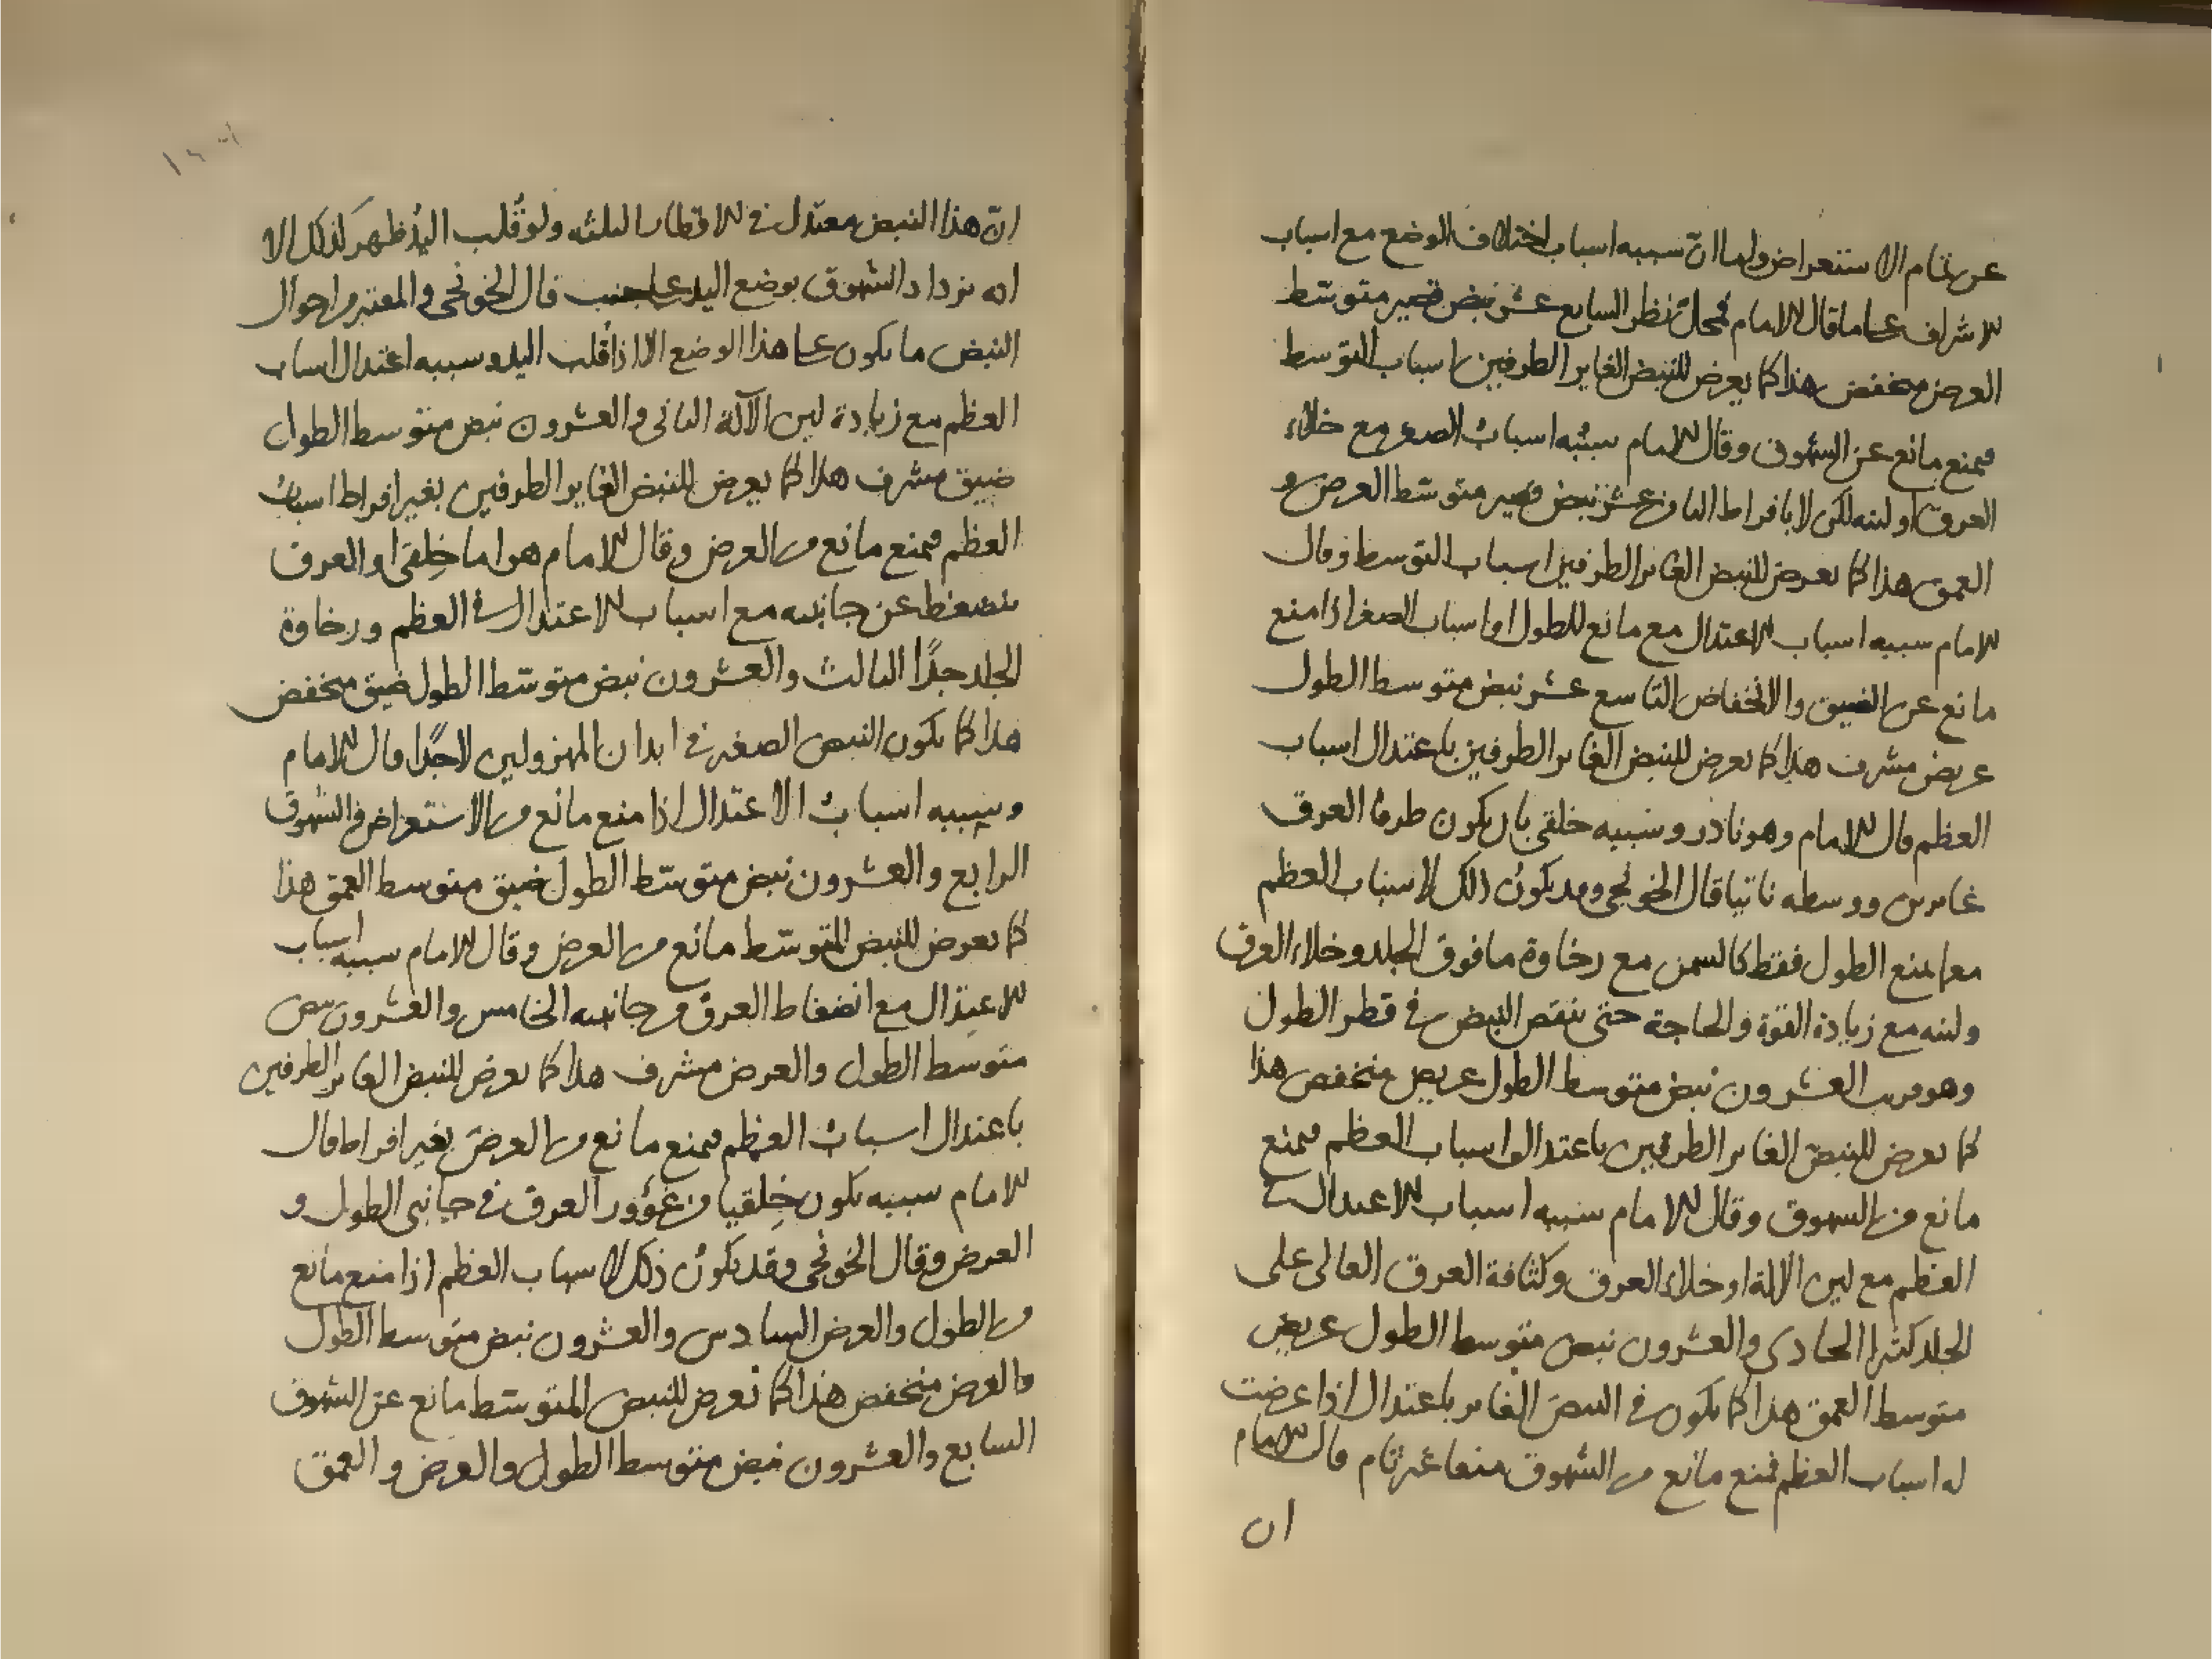 عن تمام الاستعراض ولما ان سببه اسباب اختلاف الوضع مع اسباب
الاشراف على ما قال الامام فمحل نظر السابع عشر نبض قصير متوسط
العرض منخفض هذا كما يعرض للنبض الغاير الطرفين اسباب التوسط
فيمنع مانع عن الشهوق وقال الامام سببه اسباب الصغر مع خلاء
العرق او لينه لكن لا بافراط الثامن عشر نبض قصير متوسط العرض و
العمق هذا كما يعرض للنبض الغاير الطرفين اسباب التوسط وقال
الامام سببه اسباب الاعتدال مع مانع للطول او اسباب الصغر اذا منع
مانع عن الضيق والانخفاض التاسع عشر نبض متوسط الطول
عريض مشرف هذا كما يعرض للنبض الغاير الطرفين باعتدال اسباب
العظم قال الامام وهو نادر وسببه خلقى بان يكون طرفا العرق
غايرين ووسطه ناتيا قال الخونجى وقد يكون ذلك لاسباب العظم
مع ما يمنع الطول فقط كالسمن مع رخاوة ما فوق الجلد وخلاء العرق
ولينه مع زيادة القوة والحاجة حتى ينقص النبض فى قطر الطول
وهو قريب العشرون نبض متوسط الطول عريض منخفض هذا
كما يعرض للنبض الغاير الطرفين باعتدال اسباب العظم فيمنع
مانع من الشهوق وقال الامام سببه اسباب الاعتدال فى
العظم مع لين الالة او خلاء العرق وكثافة العرق العالى على
الجلد كثيرا الحادى والعشرون نبض متوسط الطول عريض
متوسط العمق هذا كما يكون فى النبض الغاير باعتدال اذا عرضت
له اسباب العظم فمنع مانع من الشهوق منعا غير تام قال الامام
ان
ان هذا النبض معتدل فى الاقطار الثلثه ولو قُلب اليد ظهر كذلك الا
انه يزداد الشهوق بوضع اليد على جنب قال الخونجى والمعتبر من احوال
النبض ما يكون على هذا الوضع الا اذا قلب اليد وسببه اعتدال اسباب
العظم مع زيادة لين الآلة الثانى والعشرون نبض متوسط الطول
ضيق مشرف هذا كما يعرض للنبض الغاير الطرفين بغير افراط اسباب
العظم فيمنع مانع من العرض وقال الامام هو اما خِلقى او العرق
ينضغط عن جانبيه مع اسباب الاعتدال فى العظم ورخاوة
الجلد جدًا الثالث والعشرون نبض متوسّط الطول ضيق منخفض
هذا كما يكون النبض الصغير فى ابدان المهزولين لا جدًا قال الامام
وسببه اسباب الاعتدال اذا منع مانع من الاستعراض والشهوق
الرابع والعشرون نبض متوسّط الطول ضيق متوسط العمق هذا
كما يعرض للنبض المتوسّط مانع من العرض وقال الامام سببه اسباب
الاعتدال مع انضغاط العرق من جانبيه الخامس والعشرون نبض
متوسط الطول والعرض مشرف هذا كما يعرض للنبض الغاير الطرفين
باعتدال اسباب العظم فيمنع مانع من العرض بغير افراط قال
الامام سببه يكون خِلقيا من غؤور العرق فى جانبى الطول و
العرض وقال الخونجى وقد يكون ذلك لاسباب العظم اذا منع مانع
من الطول والعرض السادس والعشرون نبض متوسط الطول
والعرض منخفض هذا كما يعرض للنبض المتوسّط مانع عن الشهوق
السابع والعشرون نبض متوسط الطول والعرض والعمق